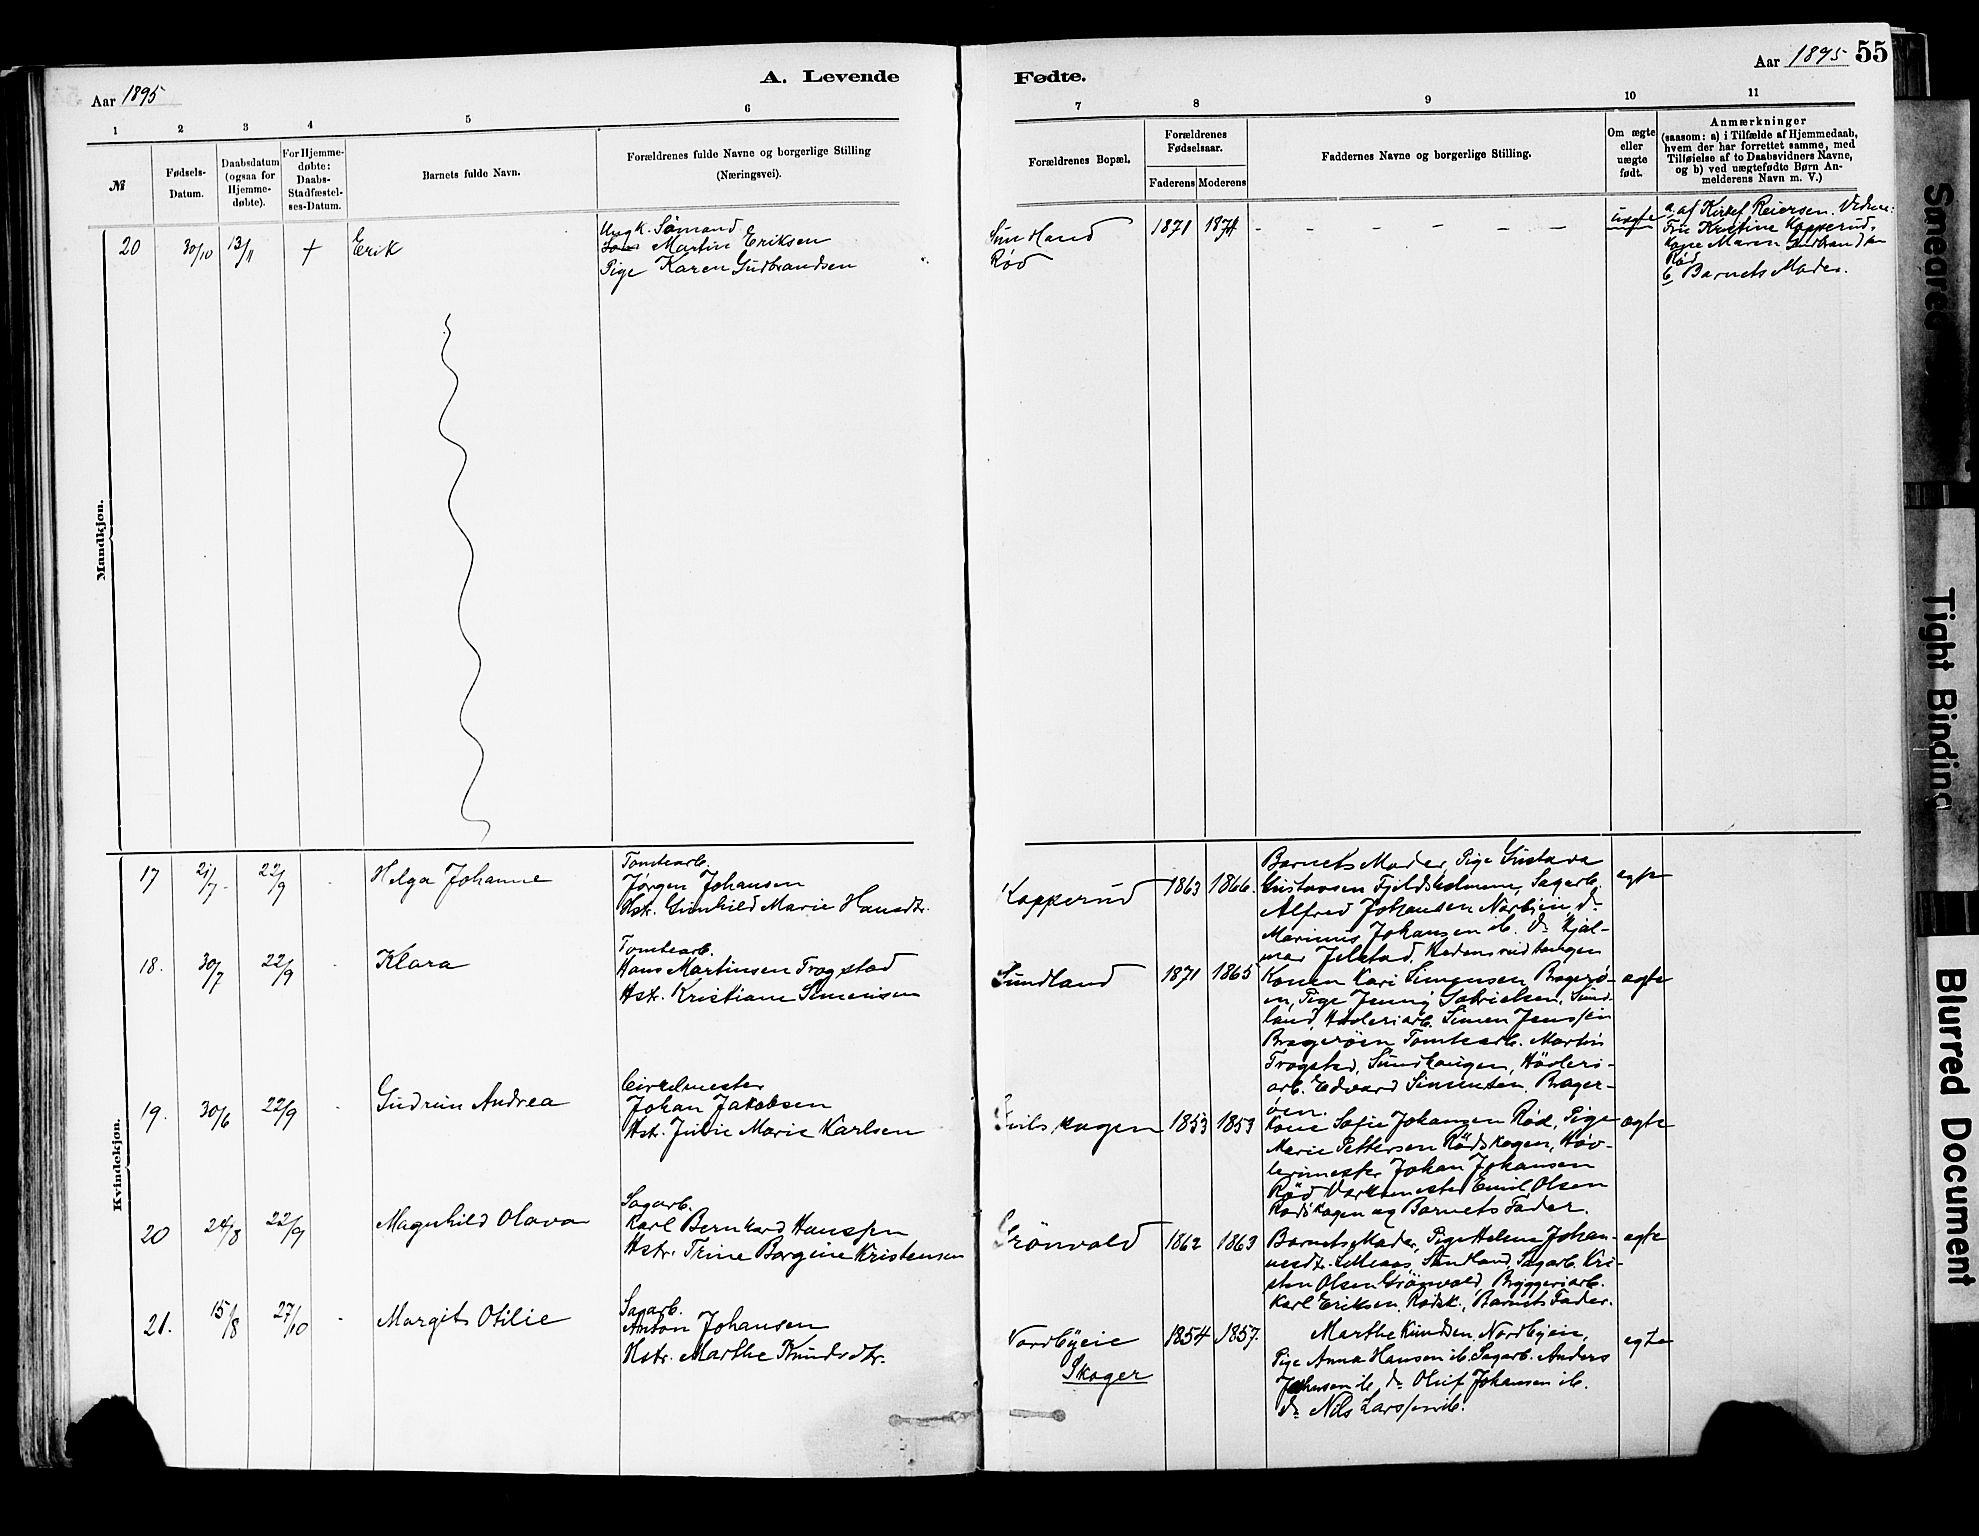 Aar 1895
A. Levende
Fødte.
Aar 1895 55
1 2 3 4 5 6 7 8 9 10 11
№
Fødsels-
Datum.
Daabsdatum
(ogsaa for
Hjemme-
døbte).
For Hjemme-
døbte:
Daabs-
Stadfæstel-
ses-Datum.
Barnets fulde Navn.
Forældrenes fulde Navne og borgerlige Stilling
(Næringsvei).
Forældrenes Bopæl.
Forældrenes
Fødselsaar.
Faderens Moderens
Faddernes Navne og borgerlige Stilling.
Om ægte
eller
uægte
født.
Anmærkninger
(saasom: a) i Tilfælde af Hjemmedaab,
hvem der har forrettet samme, med
Tilføielse af to Daabsvidners Navne,
og b) ved uægtefødte Børn An-
melderens Navn m. V.)
Mandkjøn.
20 30/10 13/11 + Erik
Ungk. Sømand
Martin Eriksen
Pige Karen Gudbrandsen
Sundland
Rød
1871 1874 - - - - - - -
uægte
a. af Kirkes. Reiersen. Vidner:
Fru Kristine Kopperud,
Kone Maren Gudbrandsen
Rød
b Barnets Moder.
Kvindekjøn.
17 21/7 22/9 - Helga Johanne
Tomtearb.
Jørgen Johansen
Hstr. Gunhild Marie Hansdtr.
Kopperud 1863 1866.
Barnets Moder, Pige Gustava
Gustavsen Fjeldsholmene, Sagarb.
Alfred Johansen Norbyeie, do
Marinus Johansen ib. do Hjal-
mar Jelstad, Hedensrudtangen
egte
18. 30/7 22/9 - Klara
Tomtearb.
Hans Martinsen Trogstad
Hstr. Kristiane Simensen
Sundland 1871 1865
Konen Kari Simensen, Bragerø-
en, Pige Jenny Gabrielsen, Sund-
land, Høvleriarb. Simen Jenssen
Bragerøen Tomtearb. Martin
Trogstad, Sundhaugen, Høvleri-
arb. Edvard Simensen, Brager-
øen.
ægte
19. 30/6 22/9 - Gudrun Andrea
Cirkelmester
Johan Jakobsen
Hst. Julie Marie Karlsen
1853 1853
Kone Sofie Johansen Rød, Pige
Marie Pettersen Rødskogen, Høv-
lerimester Johan Johansen
Rød Værksmester Emil Olsen
Rødskogen og Barnets Fader.
ægte
20 24/8 22/9 Magnhild Olava
Sagarb.
Karl Bernhard Hanssen
Hstr. Trine Borgine Kristensen
Grönvold 1862 1863
Barnets Moder, Pige Helene Johan-
nesdtr. Sundland, Sagarb. Kri-
sten Olsen Grönvold, Bryggeriarb.
Karl Eriksen, Rødsk., Barnets Fader.
egte
21. 15/8 27/10 - Margit Otilie
Sagarb.
Anton Johansen
Hstr. Marthe Knudsdtr.
Nordbyeie
Skoger
1854 1857.
Marthe Knudsen, Nordbyeie,
Pige Anna Hansen ib. Sagarb. Anders
Johansen ib. do Oluf Johansen ib.
do Nils Larssen ib.
egte
Smeared
Tight Binding
Blurred Document